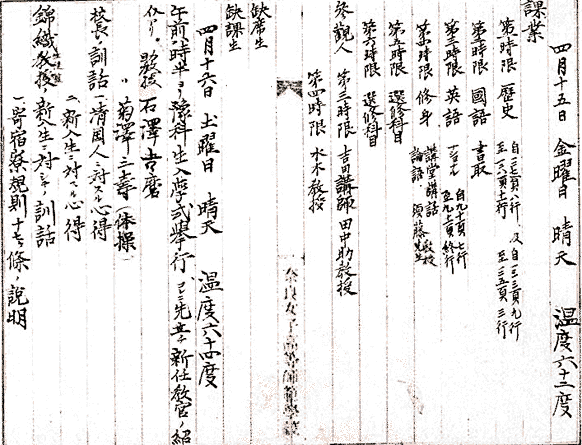 四月十五日 金曜日 晴天 温度六十二度
課業
第一時限 歴史 自一二七頁八行 至一二八頁十行 及 自一三三頁九行 至一三五頁三行
第二時限 國語 書取
第三時限 英語 自九十頁七行 至九十二頁終行
第四時限 修身 講堂講話 教授 論語 須藤先生
第五時限 選修科目
第六時限 選修科目
参觀人 第三時限 吉田講師 田中助教授
第四時限 水木教授
缺席生
缺課生
四月十六日 土曜日 晴天 温度六十四度
午前八時半ヨリ豫科生入學式擧行、コレニ先立チ新任教官ノ紹
介アリ。教授 石澤吉磨
〃 菊澤三壽(体操)
校長ノ訓話 一、清国人ニ対スル心得
二、新入生ニ対スル心得
錦織教授ノ新入生ニ対シテノ訓話
一、寄宿寮規則十七條ノ説明
奈良女子高等師範學校